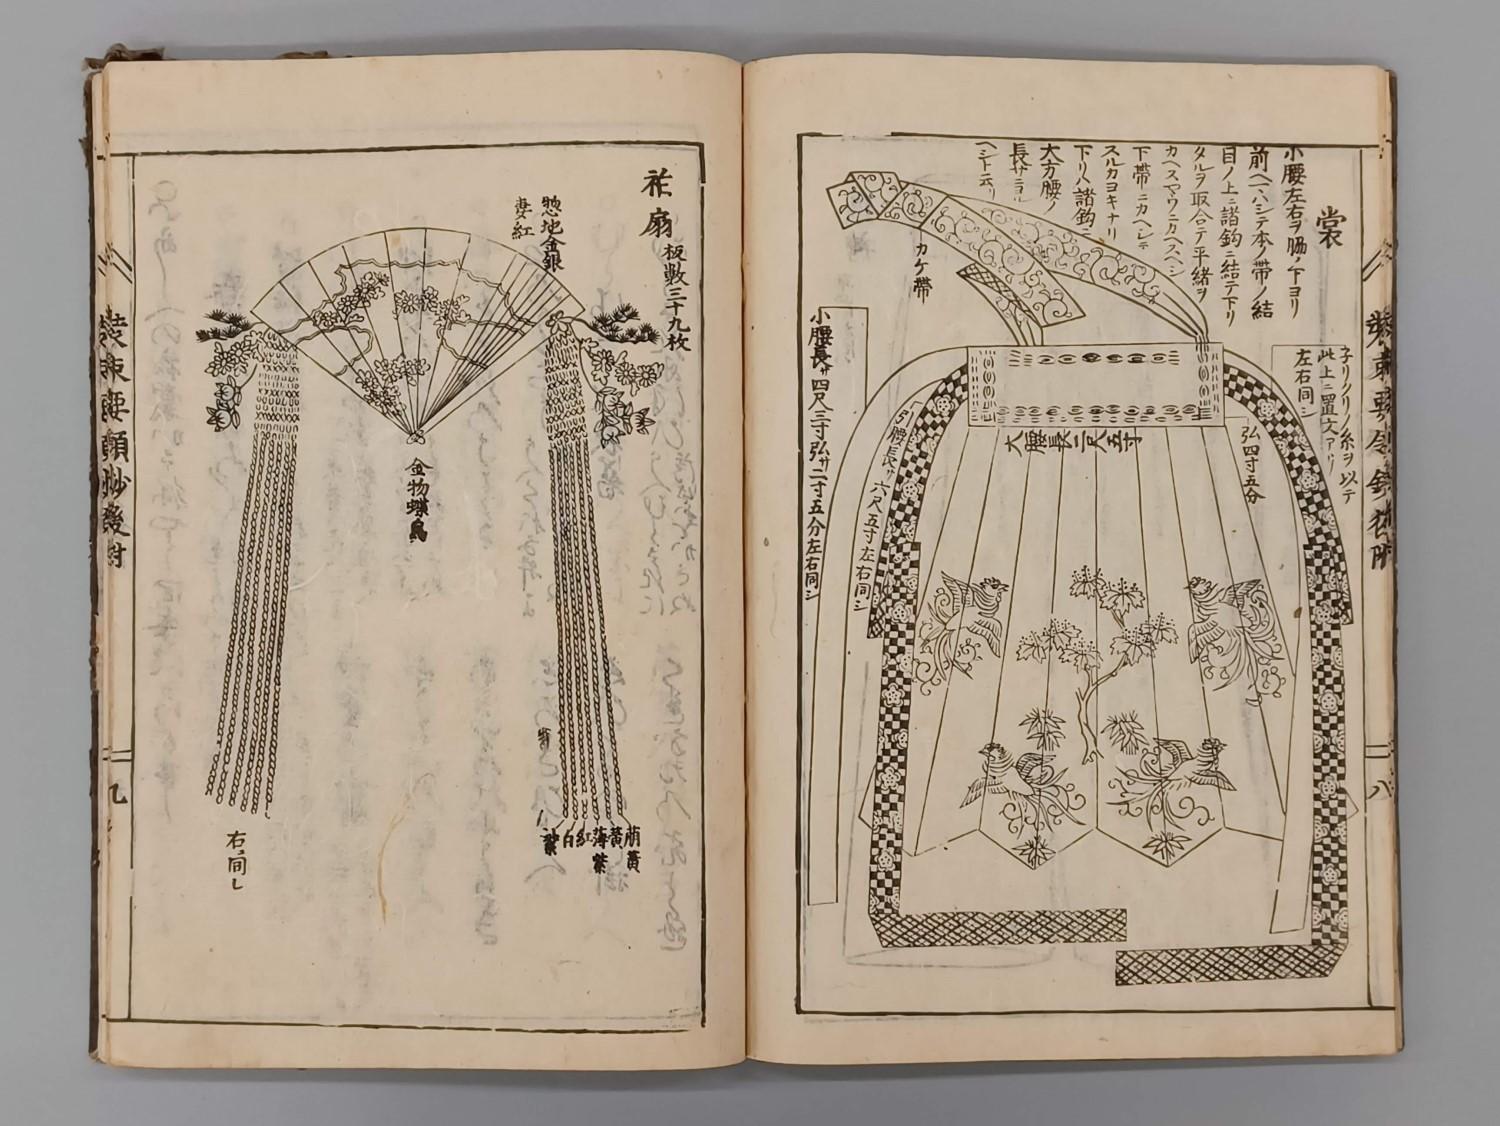 裳
小腰左右ヲ脇ノ下ヨリ
前ヘマハシテ本ノ帯ノ結
目ノ上ニ諸鈎ニ結テ下リ
タルヲ取合テ平緒ヲ
カヘスヤウニカヘスヘシ
下帯ニカヘシテ
スルカヨキナリ
下リハ諸鈎ニ
大方腰ノ
長サニヨル
ヘシト云リ
カケ帯
子リクリノ糸ヲ以テ
此上ニ置文アリ
左右同シ
弘四寸五分
大腰長二尺五寸
引腰長サ六尺五寸左右同シ
小腰長サ四尺三寸弘サ二寸五分左右同シ
八
衵扇
板數三十九枚
惣地金銀
妻紅
金物蝶鳥
萠黄
黄
薄紫
紅
白
紫
右ニ同シ
裝束要領抄後附
九